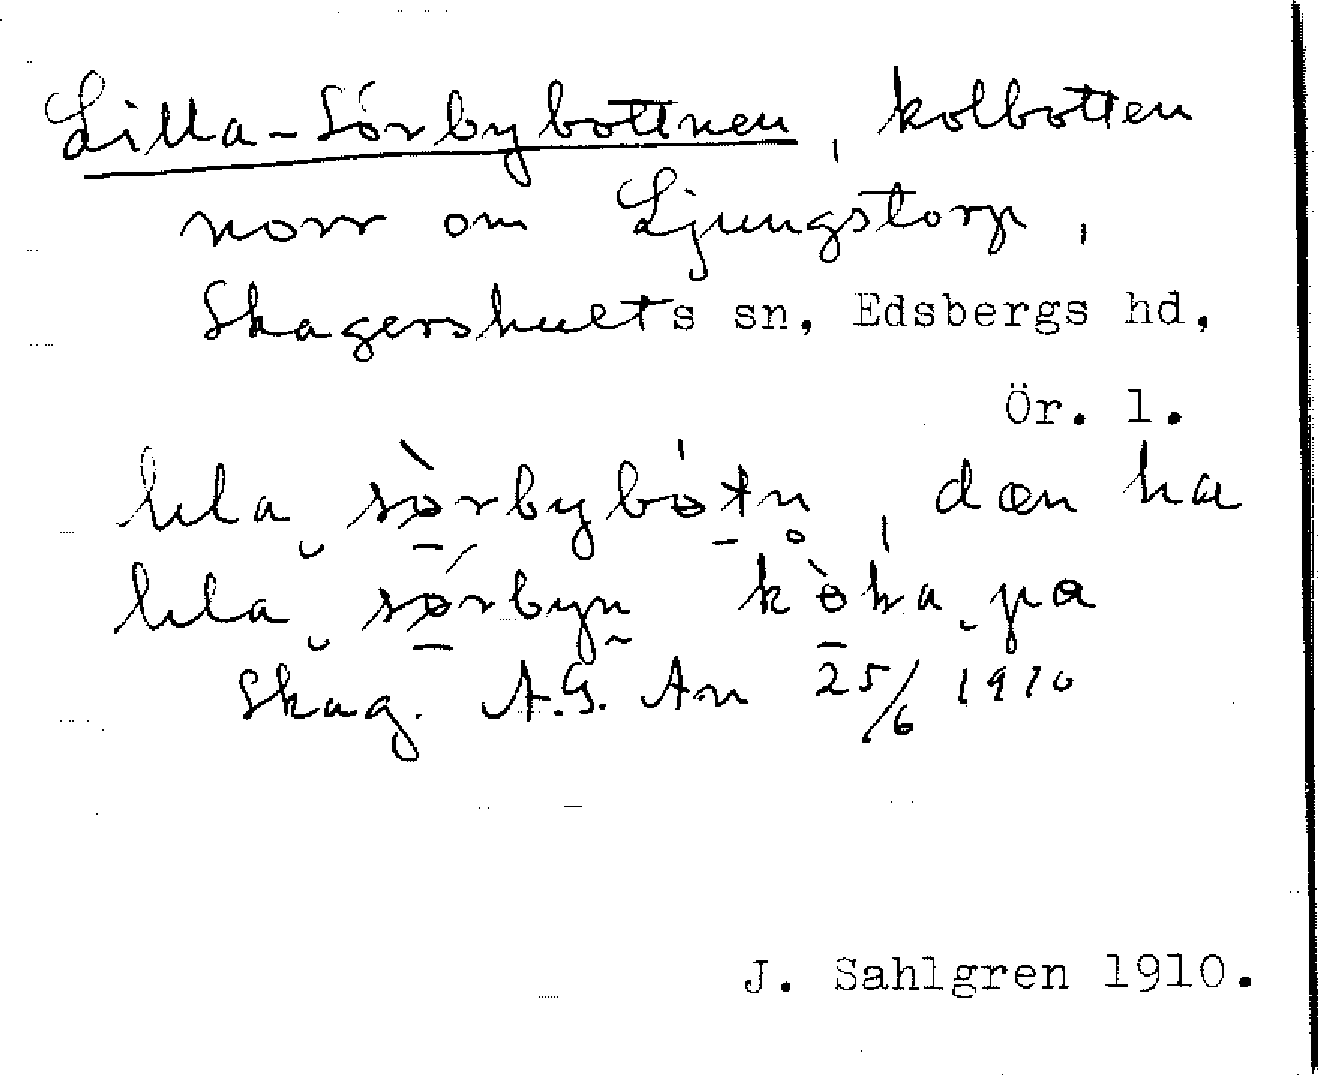 Lilla-Sörbybottnen, kolbotten
norr om Ljungstorp,
Skagershults sn, Edsbergs hd,
Ör. l.
lila sørbybòtn, dæn ha
lila sørbyn kòka pa
Skag. A.G. An 25/6 1910
J. Sahlgren 1910.